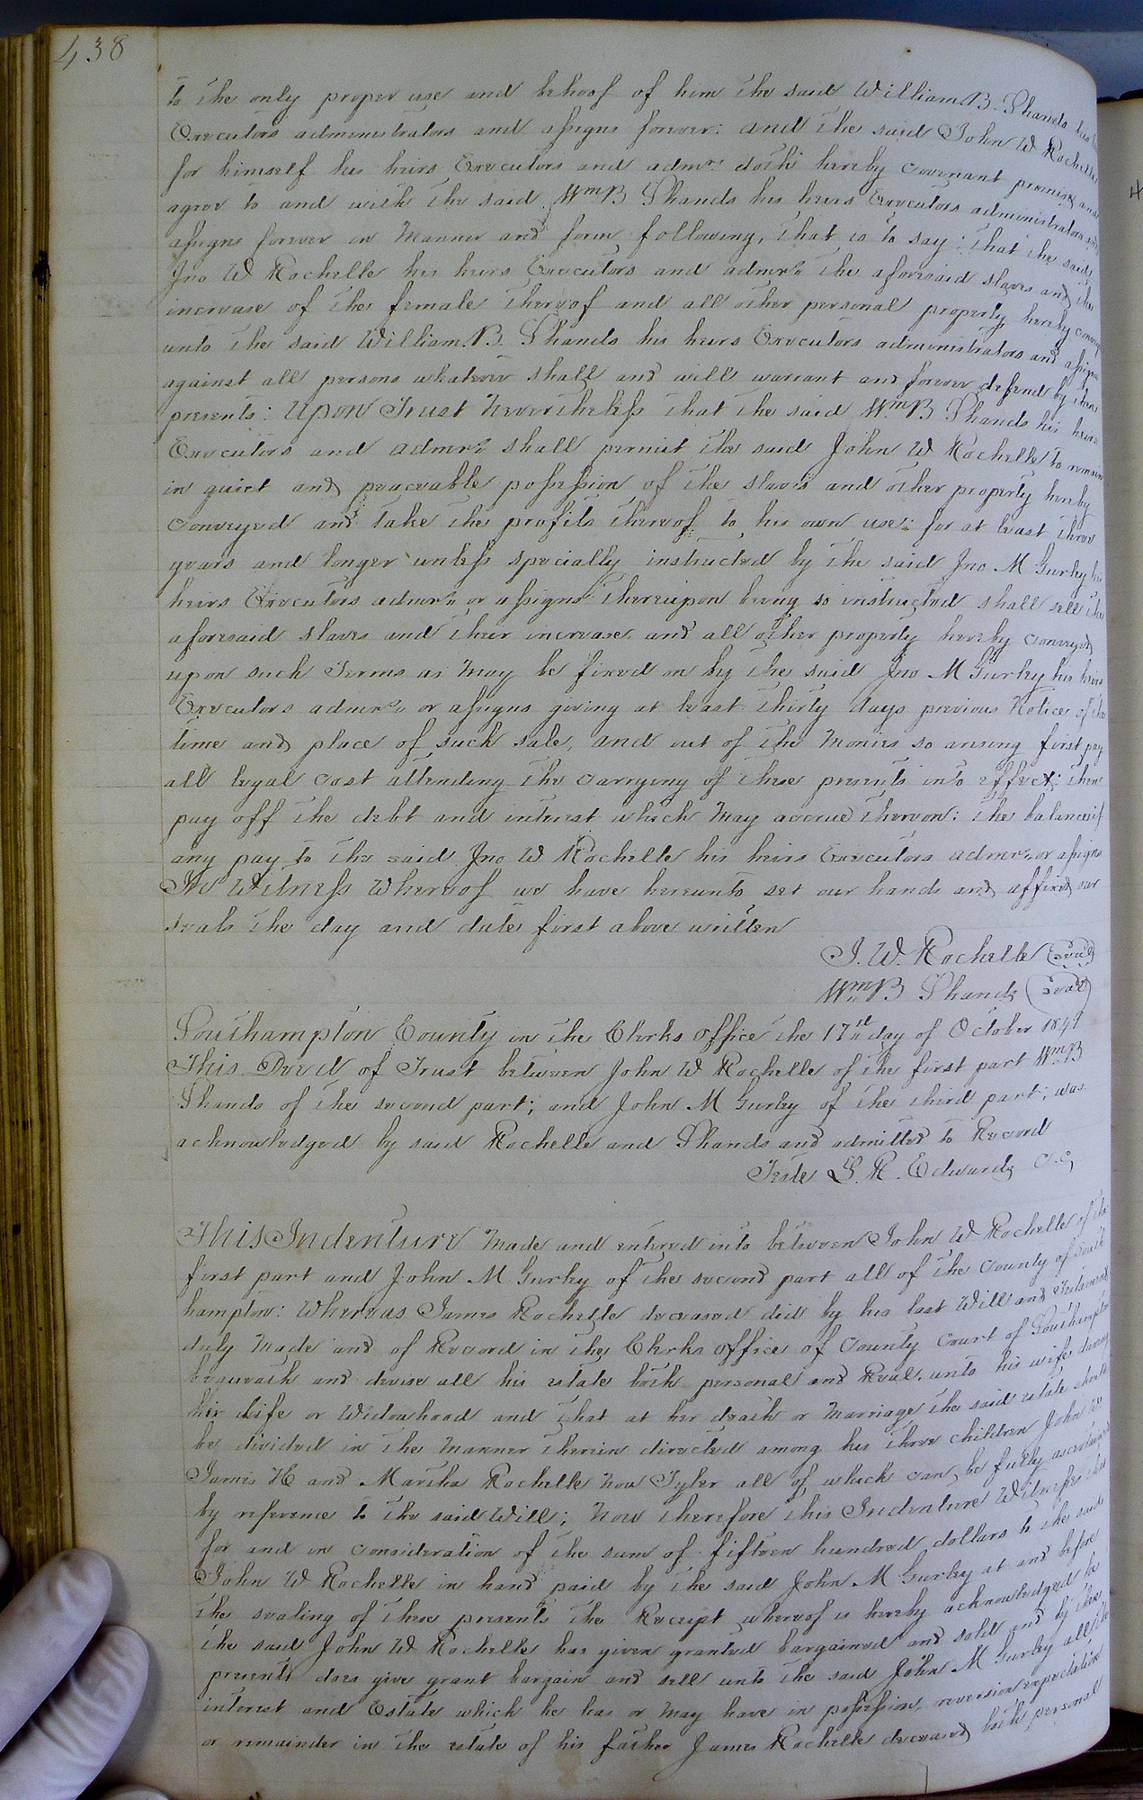 438
to the only proper use and behoof of him the said William B. Shands his
Executors administrators and assigns forever: and the said John W Rochelle
for himself his heirs Executors and admrs. doth hereby covenant promise and
agree to and with the said Wm B Shands his heirs Executors administrators and
assigns forever in Manner and form following, that is to say: that the said
Jno W Rochelle his heirs Executors and admrs. the aforesaid slaves and the
increase of the female thereof and all other personal property hereby conveyed
unto the said William B. Shands his heirs Executors administrators and assigns
against all persons whatever shall and will warrant and forever defend by these
presents: Upon Trust Nevertheless that the said Wm B Shands his heirs
Executors and admrs. shall permit the said John W Rochelle to remain
in quiet and peaceable possession of the slaves and other property hereby
conveyed and take the profits thereof to his own use: for at least three
years and longer unless specially instructed by the said Jno M Gurley his
heirs Executors admrs. or assigns thereupon being so instructed shall sell the
aforesaid slaves and their increase and all other property hereby conveyed
upon such Terms as May be fixed on by the said Jno M Gurley his heirs
Executors admrs. or assigns giving at least thirty days previous Notice of the
time and place of such sale, and out of the Monies so arising first pay
all legal cost attending the carrying of these presents into effect: then
pay off the debt and interest which May accrue thereon: the balance if
any pay to the said Jno W Rochelle his heirs Executors admrs. or assigns
In Witness Whereof we have hereunto set our hands and affixed our
seals the day and date first above written
J. W. Rochelle (Seal)
Wm B Shands (Seal)
Southampton County in the Clerks office the 17th day of October 1841
This Deed of Trust between John W Rochelle of the first part Wm B
Shands of the second part; and John M Gurley of the third part; was
acknowledged by said Rochelle and Shands and admitted to Record
Teste L. R. Edwards C.C.
This Indenture Made and entered into between John W Rochelle of the
first part and John M Gurley of the second part all of the County of South
hampton: Whereas James Rochelle deceased did by his last Will and Testament
duly Made and of Record in the Clerks office of County Court of Southampton
bequeath and devise all his estate both personal and Real, unto his wife during
her life or Widowhood and that at her death or Marriage the said estate should
be divided in the Manner therein directed among his three children John W
James H and Martha Rochelle Now Tyler all of which can be fully ascertained
by reference to the said Will; Now therefore this Indenture Witnesses that
for and in consideration of the sum of fifteen hundred dollars to the said
John W Rochelle in hand paid by the said John M Gurley at and before
the sealing of these presents the Receipt whereof is hereby acknowledged he
the said John W Rochelle has given granted bargained and sold and by these
presents does give grant bargain and sell unto the said John M Gurley all the
interest and Estate which he has or May have in possession, reversion expectation
or remainder in the estate of his father James Rochelle deceased both personal